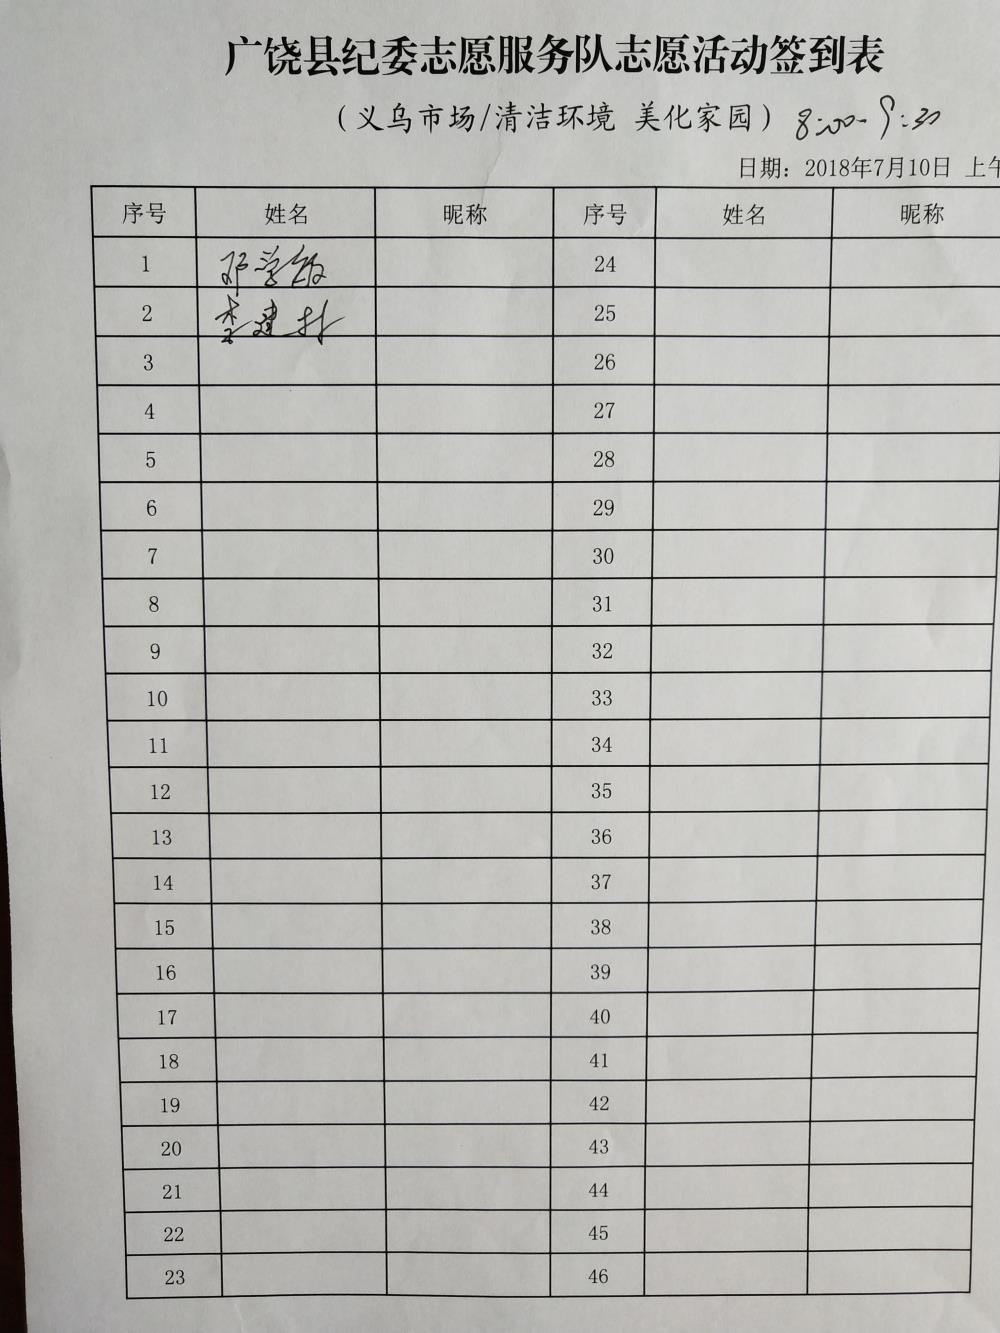 广饶县纪委志愿服务队志愿活动签到表
（义乌市场/清洁环境 美化家园） 8:00-9:30
日期：2018年7月10日 上午
序号 姓名 昵称 序号 姓名 昵称
1 邓学敏 24
2 李建林 25
3 26
4 27
5 28
6 29
7 30
8 31
9 32
10 33
11 34
12 35
13 36
14 37
15 38
16 39
17 40
18 41
19 42
20 43
21 44
22 45
23 46